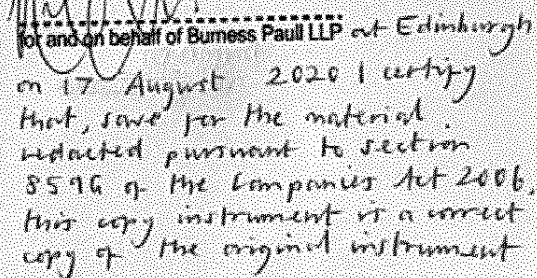 for and on behalf of Burness Paull LLP at Edinburgh
on 17 August 2020 I certify
that, save for the material
redacted pursuant to section
859G of the Companies Act 2006,
this copy instrument is a correct
copy of the original instrument